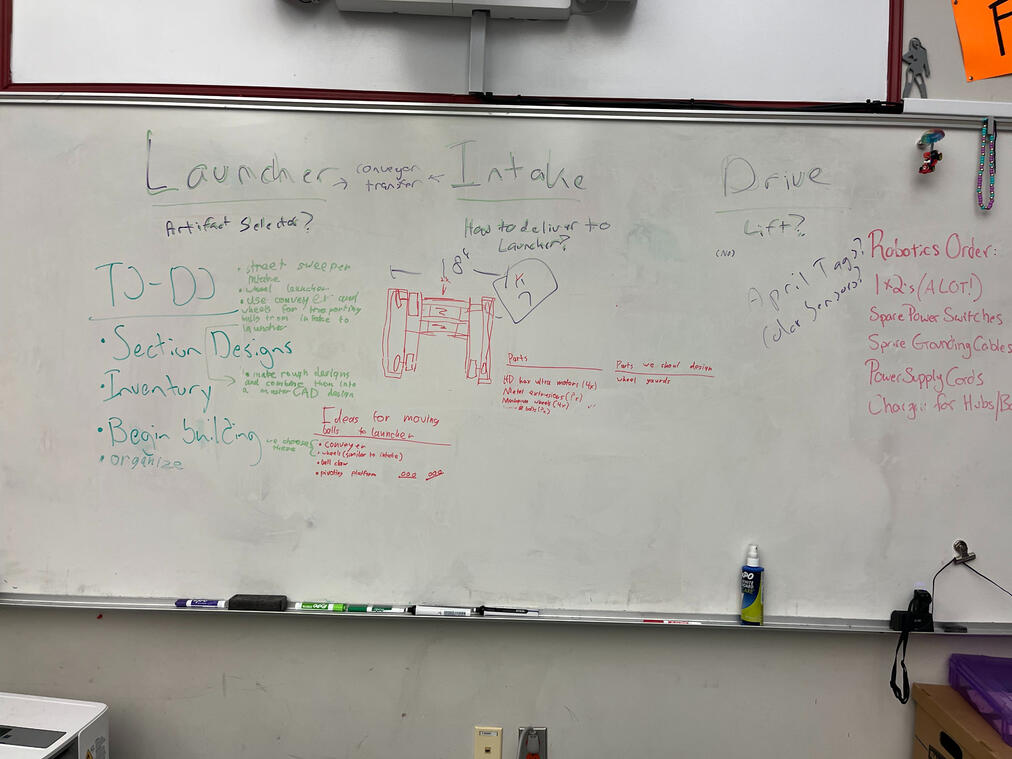 Launcher
→ conveyor ←
transfer
Intake
Drive
Artifact Selector?
How to deliver to
Launcher?
Lift?
(No)
TJ-DJ
• street sweeper
intake
• wheel launcher
• use conveyer and
wheels for transporting
balls from intake to
launcher
• Section Designs
→ • make rough designs
and combine them into
a master CAD design
• Inventory
• Begin building
• organize
we choose
theme
18"
Ideas for moving
balls to launcher
• conveyer
• wheels (similar to intake)
• ball claw
• pivoting platform
Parts
HD hex ultra motors (4x)
Metal extrusions (?x)
wheels (4x)
Parts we shoul design
wheel gaurds
April Tags?
Color Sensors?
Robotics Order:
1x2's (A LOT!)
Spare Power Switches
Spare Grounding Cables
Power Supply Cords
for Hubs/Ba
EXPO